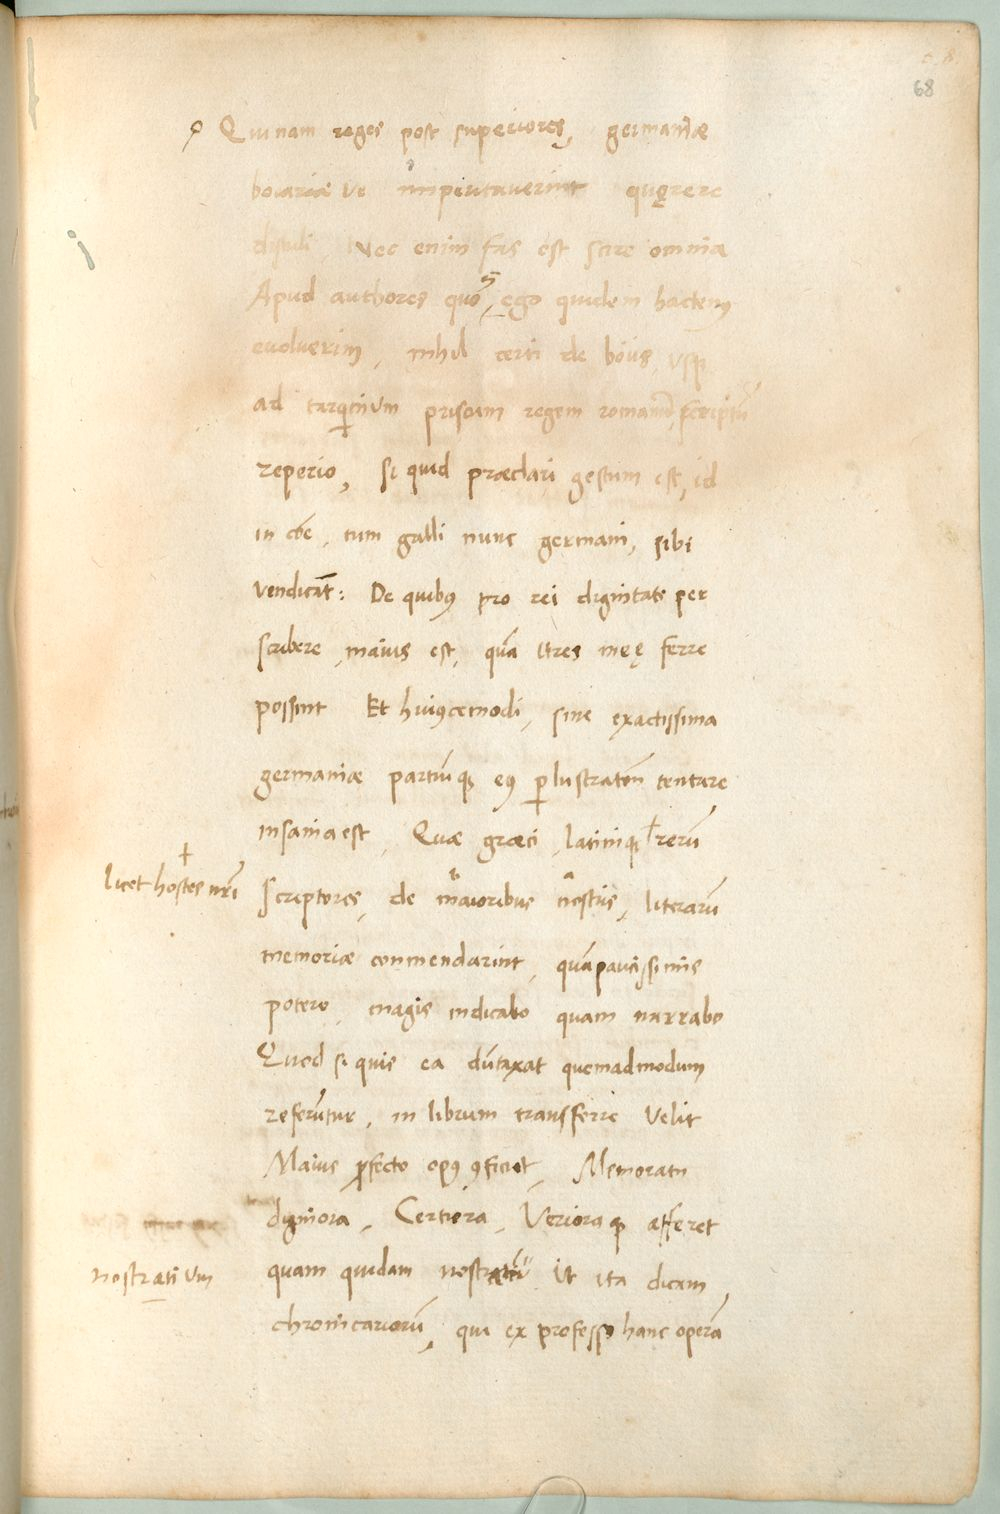 68
Quinam reges post superiores, germaniæ
boiariæ ve imperitauerint quęrere
distuli, Nec enim fas est scire omnia
Apud authores quos, ego quidem hactenus
euoluerim, nihil certi de boiis, usque
ad tarquinium priscum regem romanorum, scriptum
reperio, si quid præclari gestum est, id
in orbe, tum galli nunc germani, sibi
vendicant: De quibus pro rei dignitate per
scribere, maius est, quam vires meę ferre
possint Et huiuscemodi, sine exactissima
germaniæ partiumque eius perlustratione tentare
insania est, Quæ græci, latinique † rerum
† licet hostes nostri
scriptores, de maioribus nostris, literarum
memoriæ commendarint, quam paucissimis
potero, magis indicabo quam narrabo
Quod si quis ea duntaxat quemadmodum
referuntur, in librum transferre velit
Maius profecto opus conficiet, Memoratu
digniora, Certiora, Verioraque afferet
quam quidam ut ita dicam,
nostratium
chronicariorum, qui ex professo hanc operam